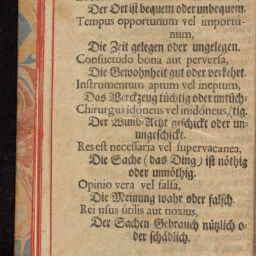 Der Ort ist bequem oder unbequem.
Tempus opportunum vel importu-
num,
Die Zeit gelegen oder ungelegen.
Consuetudo bona aut perversa,
Die Gewohnheit gut oder verkehrt.
Instrumentum aptum vel ineptum,
Das Werckzeug tüchtig oder untüch-
Chirurgus idoneus vel inidoneus, (tig.
Der Wund-Artzt geschickt oder un-
ungeschickt.
Res est necessaria vel supervacanea,
Die Sache (das Ding) ist nöthig
oder unnöthig.
Opinio vera vel falsa,
Die Meinung wahr oder falsch.
Rei usus utilis aut noxius,
Der Sachen Gebrauch nützlich o-
der schädlich.